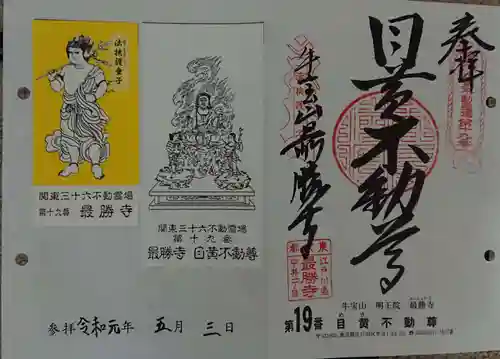 法挟護童子
関東三十六不動霊場
第十九番 最勝寺
関東三十六不動霊場
第十九番
最勝寺 目黄不動尊
参拝 令和元年 五月 三日
奉拝
目黄不動尊
牛宝山最勝寺
東江戸川區
最勝寺
牛宝山 明王院 最勝寺
第19番 目黄不動尊